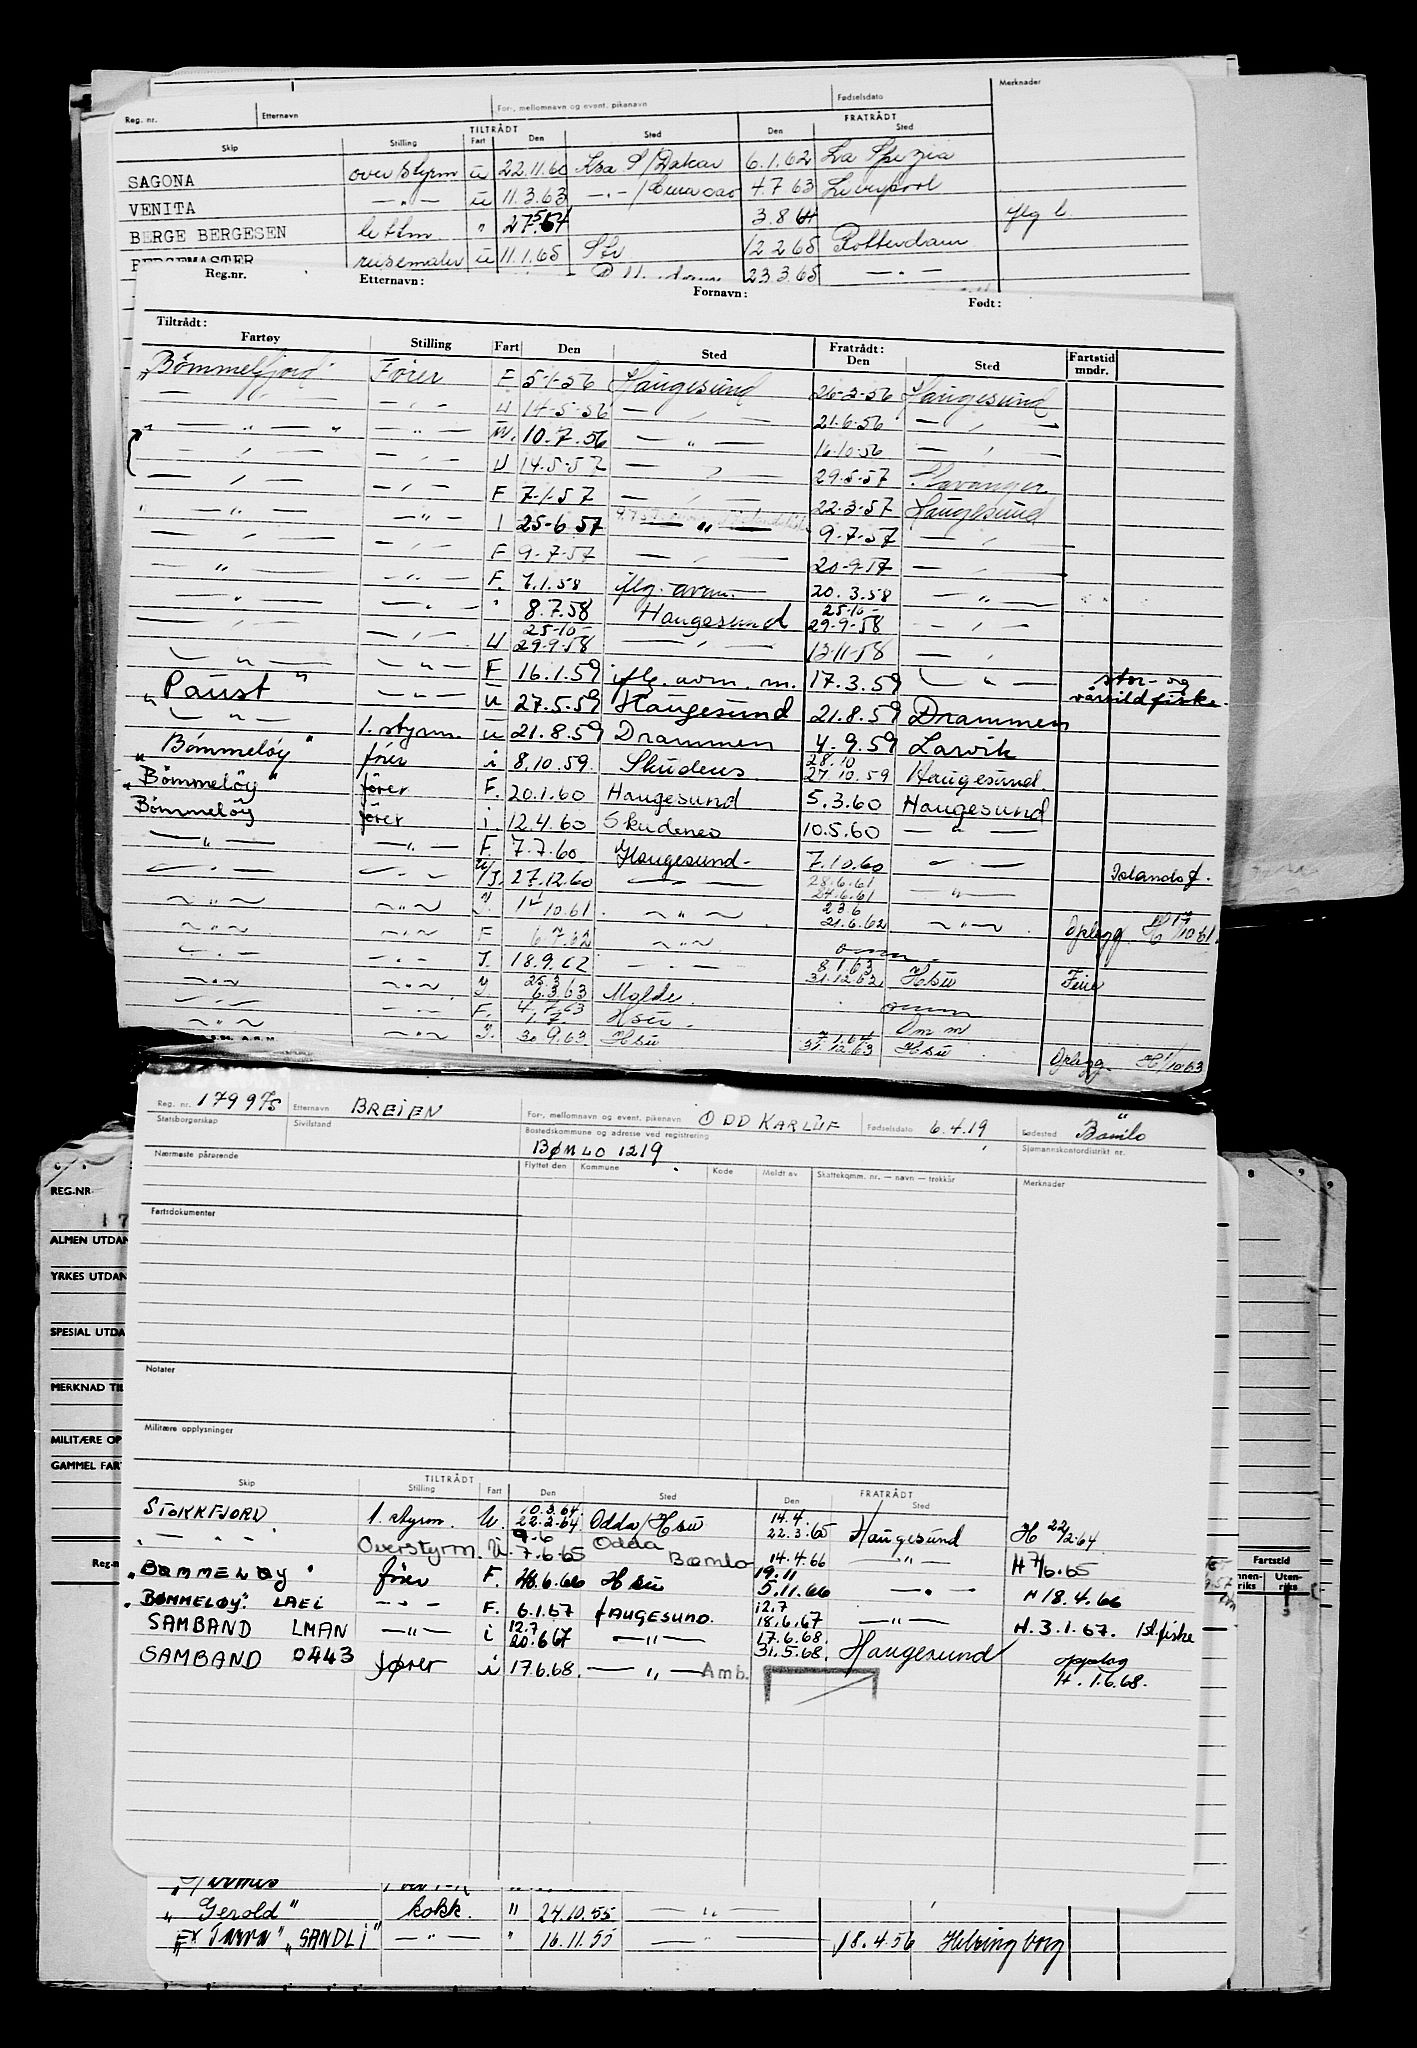 Reg. nr. Etternavn For-, mellomnavn og event. pikenavn Fødselsdato Merknader
TILTRÅDT FRATRÅDT
Skip Stilling Fart Den Sted Den Sted
SAGONA overstyrm u 22.11.60 Lsa S/Dakar 6.1.62 La Spezia
VENITA — " — u 11.3.63 — " — / 4.7.63 Liverpool
BERGE BERGESEN " 27.5.64 3.8.64
BERGEMASTER reisemaler u 11.1.65 12.2.65 Rotterdam
23.3.65 — " —
Reg.nr. Etternavn: Fornavn: Født:
Tiltrådt: Fratrådt:
Fartøy Stilling Fart Den Sted Den Sted Fartstid mndr.
"Bömmelfjord" Fører F 5-1-56 Haugesund 26-3-56 Haugesund
— " — — " — U 14-5-56 — " — 21-6-56 — " —
— " — — " — 10.7.56 — " — 16-10-56 — " —
— " — — " — U 14-5-57 — " — 29-5-57 Stavanger
— " — — " — F 7-1-57 — " — 22-3-57 Haugesund
— " — — " — I 25-6-57 — " — 9-7-57 — " —
— " — — " — F 9-7-57 — " — 20-9-17 — " —
— " — — " — F. 7.1.58 iflg. avm. 20.3.58 — " —
— " — — " — " 8.7.58 Haugesund 25-10- 29-9-58 — " —
— " — — " — U 25-10- 29-9-58 — " — 13-11-58 — " —
— " — — " — F 16.1.59 ifl. avm. m. 17.3.59 — " — stor- og vårsildfiske.
"Paust" — " — u 27.5.59 Haugesund 21.8.59 Drammen
— " — 1. styrm. u 21.8.59 Drammen 4.9.59 Larvik
"Bömmelöy" fører i 8.10.59. Skudens 28.10 27.10.59 Haugesund.
"Bömmelöy" fører F. 20.1.60 Haugesund 5.3.60 Haugesund
Bömmelöy fører i. 12.4.60 Skudenes 10.5.60 — " —
— " — — " — F. 7.7.60 Haugesund- 7.10.60 — " — Islandsf.
— " — — " — U/I. 27.12.60 — " — 28.6.61 24.6.61 — " —
— " — — " — I. 10.61. — " — 23 6 21.6.62 — " — Oplegg H 17/10 61.
— " — — " — F 6.7.62 — " —
— " — — " — I. 18.9.62 — " — 8.1.63 31.12.62 Hsu Ferie
— " — — " — I 25.3 6.3.63 Molde.
— " — — " — F. 4.7.63 1.7 Hsu.
— " — — " — I. 30.9.63 Hsu 7.1.64 31.12.63 Hsu Oplegg. H 1/10 63
Reg. nr. 179975 Etternavn BREIEN For-, mellomnavn og event. pikenavn ODD KARLUF Fødselsdato 6.4.19 Fødested Bömlo
Statsborgerskap Sivilstand Bostedskommune og adresse ved registrering BØMLO 1219 Sjømannskontordistrikt nr.
Nærmeste pårørende Flyttet den Kommune Kode Meldt av Skattekomm. nr. — navn — trekkår Merknader
Fartsdokumenter
Notater
Militære opplysninger
TILTRÅDT FRATRÅDT
Skip Stilling Fart Den Sted Den Sted
STOKKFJORD 1. styrm. U. 10.3.64 22.2.64 Odda/Hsu 14.4. 22.3.65 Haugesund H 22/2.64
— " — Overstyrm. U. 9-6 7.6.65 Odda Bømlo 14.4.66 — " — H 7/6.65
"BØMMELØY" fører F. 18.6.66 Hsu 19.11 5.11.66 — " — H 18.4.66
"BØMMELØY". LAEL — " — F. 6.1.67 HAUGESUND. 12.7 18.6.67 — " — H. 3.1.67. Isl.fiske
SAMBAND LMAN — " — i 12.7 20.6.67 — " — 17.6.68. 31.5.68. Haugesund opplag H. 1.6.68.
SAMBAND 0443 fører i 17.6.68. — " — Amb.
REG.NR
17
ALMEN UTDAN
YRKES UTDAN
SPESIAL UTDA
MERKNAD TIL
MILITÆRE OP
GAMMEL FART
Reg.n
8 9 9
Fartstid
Uten- riks
"Gerold" kokk. " 24.10.55 — " —
"EX Tarra" "SANDLI" — " — " 16.11.55 — " — 18.4.56 Helsingborg